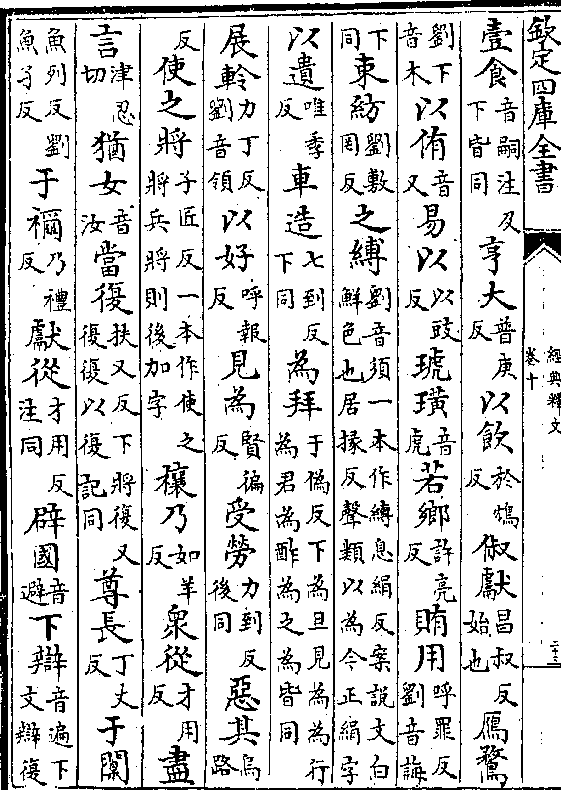 欽定四庫全書
經典釋文
卷十
二十三
壹食音嗣注及下皆同亨大普庚反以飲於鴆反俶獻昌叔反始也鴈鶩
劉音木下以侑音又易以以豉反琥璜音虎若鄉許亮反賄用呼罪反劉音誨
下同束紡劉敷罔反之縛劉音須一本作縳息絹反案說文白鮮色也居掾反聲類以為今正絹字
以遺唯季反車造七到反下同為拜于偽反下為旦見為為行為君為酢為之為皆同
展軨力丁反劉音領以好呼報反見為賢徧反受勞力到反後同惡其烏路
反使之將子匠反一本作使之將兵將則後加字穰乃如羊反眾從才用反盡
言津忍切猶女音汝當復扶又反下將復又復復以復記同尊長丁丈反于闑
魚列反劉魚孑反于禰乃禮反獻從才用反注同辟國音避下辯音遍下文辯復